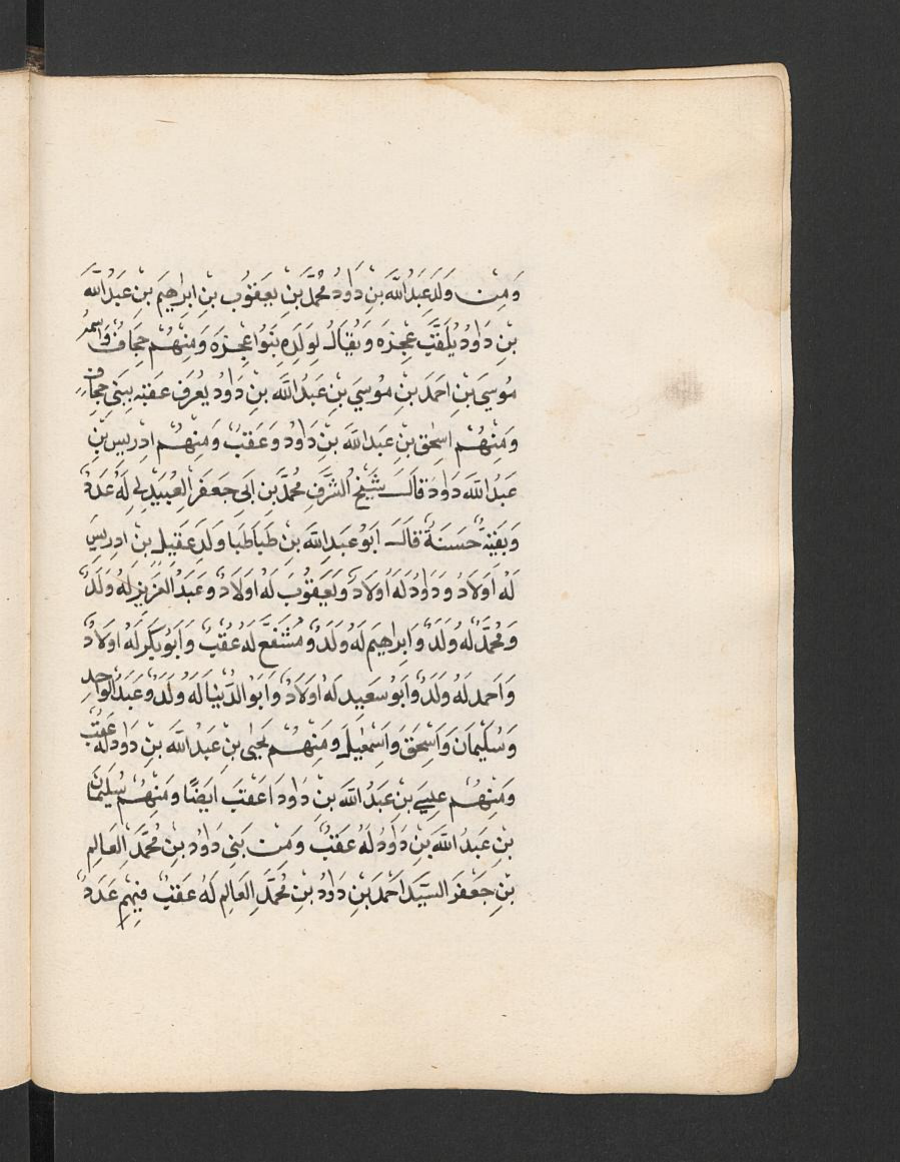 وَمِن وَلَدِ عَبدُ اللَّه بنِ دَاوُد مُحمَّد بنَ يَعقوُب بنِ ابرِاهيمَ بنِ عَبدُ اللَّه
بنِ دَاوُد يُلَقَّب عِجِزَه وَيُقالُـ لِوَلَدِه بَنوُا عِجِزَه وَمِنهُم حِجَاف وَاسمُهُ
موُسيَ بنِ احَمدَ بنِ موُسيَ بنِ عَبدُ اللَّه بنِ دَاوُد يُعرَف عَقبُه بِبَنيِ حِجاف
وَمِنهُم اسِحٰق بنِ عَبد اللَّه بنِ دَاوُد وَعَقبُ وَمِنهُم ادِريسِ بنِ
عَبدُ اللَّه دَاوُد قَالَـ شَيخُ الشَّرَفِ مُحمَّد بن ابَي جَعفَر العُبَيدَلي لَهُ عَدَدٌ
وَبَقيَّةٌ حَسَنَةٌ قَالَـ ابَوُ عَبدِ اللَّه بنِ طَباطَبا وَلَدِ عَقيل بن ادِريسِ
لَهُ اوَلادٌ وَدَاوُد لَهُ اوَلادٌ وَيَعقوُبَ لَهُ اوَلادٌ وَعَبدُ العَزيزِ لَهُ وَلَدٌ
وَمُحمَّد لَهُ وَلَدٌ وَابِراهيمَ لَهُ وَلَدٌ وَمُشَنفَع لَهُ عَقبٌ وَابَوُ بَكَر لَهُ اوَلادٌ
وَاحَمد لَهُ وَلَدٌ وَابَوُ سَعيد لَهُ اوَلادٌ وَابَوُ الدُّنيا لَهُ وَلَدٌ وَعَبدُ الوَاحِدِ
وَسُلَيمان وَاسِحٰقَ وَاسِمٰعيلَ وَمِنهُم يَحيى بنِ عَبدُ اللَّه بنِ دَاوُد لَهُ عَقبٌ
وَمِنهُم عِيسيَ بنِ عَبدُ اللَّه بنِ دَاوُد اعَقَبَ ايَضًا وَمِنهُم سُلَيمانَ
بنِ عَبدُ اللَّه بنِ دَاوُد لَهُ عَقبٌ وَمِن بَنيِ دَاوُد بنِ مُحمَّد العَالِم
بنِ جَعفَر السَّيّدَ احَمد بنِ دَاوُد بنِ مُحمَّد العَالِم لَهُ عَقبٌ فيهِم عَدَدٌ